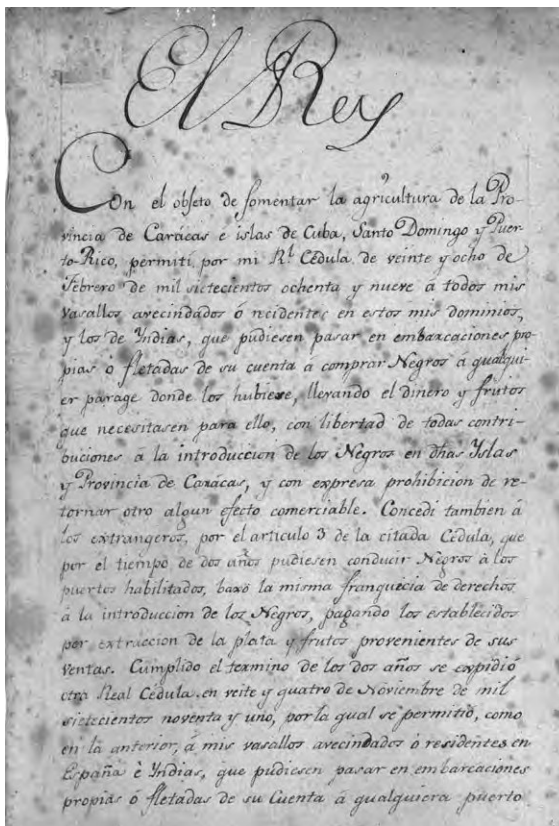 El Rey
Con el objeto de fomentar la agricultura de la Pro-
vincia de Carácas e islas de Cuba, Santo Domingo y Puer-
to-Rico, permití por mi Rl. Cédula de veinte y ocho de
Febrero de mil sietecientos ochenta y nueve á todos mis
vasallos avecindados ó residentes en estos mis dominios,
y los de Yndias, que pudiesen pasar en embarcaciones pro-
pias ó fletadas de su cuenta á comprar Negros á qualqui-
er parage donde los hubiese, llevando el dinero y frutos
que necesitasen para ello, con libertad de todas contri-
buciones a la introduccion de los Negros en dhas Yslas
y Provincia de Caracas, y con expresa prohibicion de re-
tornar otro algun efecto comerciable. Concedi tambien á
los extrangeros, por el articulo 3 de la citada Cédula, que
por el tiempo de dos años pudiesen conducir Negros á los
puertos habilitados, baxo la misma franquecia de derechos
á la introduccion de los Negros, pagando los establecidos
por extraccion de la plata y frutos provenientes de sus
ventas. Cumplido el termino de los dos años se expidió
otra Real Cédula en veite y quatro de Noviembre de mil
sietecientos noventa y uno, por la qual se permitió, como
en la anterior, á mis vasallos avecindados ó residentes en
España è Yndias, que pudiesen pasar en embarcaciones
propias ó fletadas de su Cuenta á qualquiera puerto